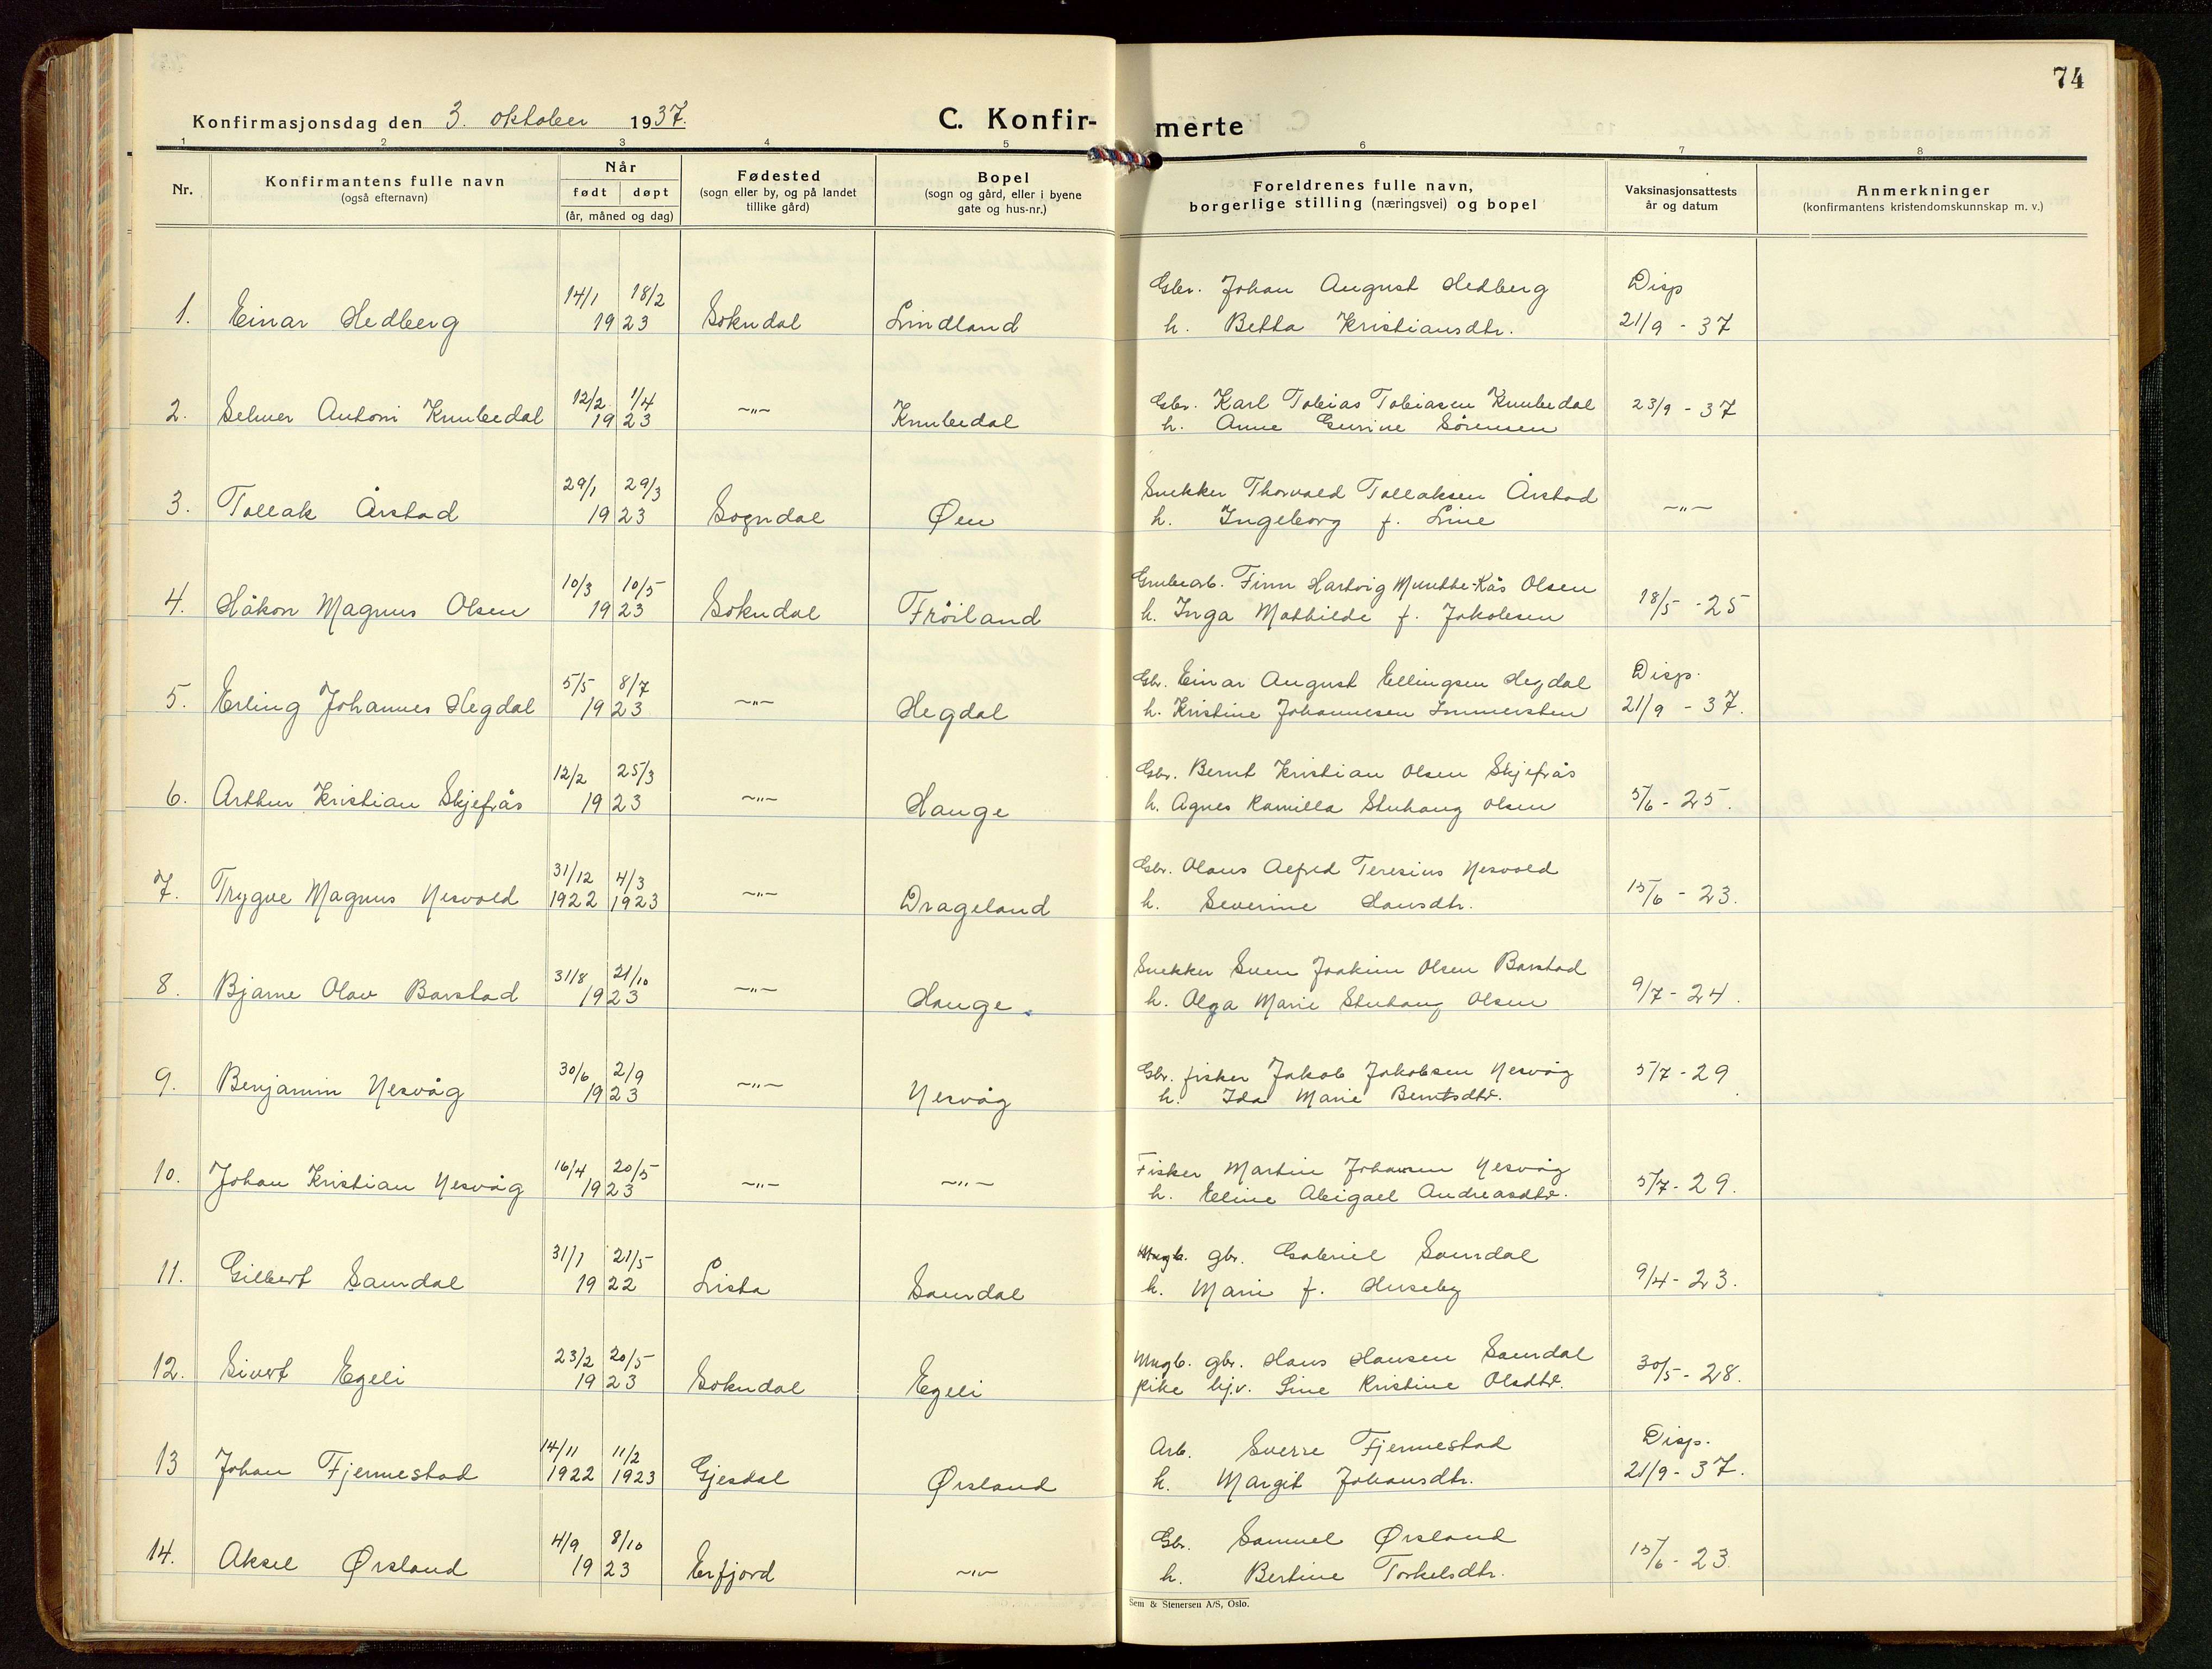 74
Konfirmasjonsdag den 3. oktober 1937.
C. Konfir- merte
1 2 3 4 5 6 7 8
Nr.
Konfirmantens fulle navn
(også efternavn)
Når
født døpt
(år, måned og dag)
Fødested
(sogn eller by, og på landet
tillike gård)
Bopel
(sogn og gård, eller i byene
gate og hus-nr.)
Foreldrenes fulle navn,
borgerlige stilling (næringsvei) og bopel
Vaksinasjonsattests
år og datum
Anmerkninger
(konfirmantens kristendomskunnskap m. v.)
14/1 18/2 Gbr. Johan August Hedberg Disp
1. Einar Hedberg 1923 Sokndal Lindland h. Betta Kristiansdtr. 21/9 - 37
12/2 1/4 Gbr. Karl Tobias Tobiasen Knubedal 23/9 - 37
2. Selmer Antoni Knubedal 1923 -„- Knubedal h. Anne Gurine Sørensen
29/1 29/3 Snekker Thorvald Tollaksen Årstad
3. Tollak Årstad 1923 Sogndal Øen h. Ingeborg f. Line -„-
10/3 10/5 Grubearb. Finn Hartvig Munthe-Kås Olsen
4. Håkon Magnus Olsen 1923 Sokndal Frøiland h. Inga Mathilde f. Jakobsen 18/5 - 25
5/5 8/7 Gbr. Einar August Ellingsen Hegdal Disp.
5. Erling Johannes Hegdal 1923 -„- Hegdal h. Kristine Johannesen Immersten 21/9 - 37.
12/2 25/3 Gbr. Bernt Kristian Olsen Skjefrås
6. Arthur Kristian Skjefrås 1923 -„- Hauge h. Agnes Kamilla Stuhaug Olsen 5/6 - 25.
31/12 4/3 Gbr. Olaus Alfred Teresius Nesvold
7. Trygve Magnus Nesvold 1922 1923 -„- Drageland h. Severine Hansdtr. 15/6 - 23.
31/8 21/10 Snekker Sven Joakim Olsen Barstad
8. Bjarne Olav Barstad 1923 -„- Hauge. h. Olga Marie Stuhaug Olsen 9/7 - 24.
30/6 2/9 Gbr. fisker Jakob Jakobsen Nesvåg 5/7 - 29
9. Benjamin Nesvåg 1923 -„- Nesvåg h. Ida Marie Berntsdtr.
16/4 20/5 Fisker Martin Johansen Nesvåg
10. Johan Kristian Nesvåg 1923 -„- -„- h. Eline Abigael Andreasdtr. 5/7 - 29.
31/1 21/5 Ungk. gbr. Gabriel Samdal
11. Gilbert Samdal 1922 Lista Samdal h. Marie f. Huseby 9/4 - 23.
23/2 20/5 Ungk. gbr. Hans Hansen Samdal
12. Sivert Egeli 1923 Sokndal Egeli pike hjv. Sine Kristine Olsdtr. 30/5 - 28.
14/11 11/2 Arb. Sverre Fjermestad Disp.
13 Johan Fjermestad 1922 1923 Gjesdal Ørsland h. Margit Johansdtr. 21/9 - 37.
4/9 8/10 Gbr. Samuel Ørsland
14. Aksel Ørsland 1923 Erfjord -„- h. Bertine Torkelsdtr. 15/6 - 23.
Sem & Stenersen A/S, Oslo.